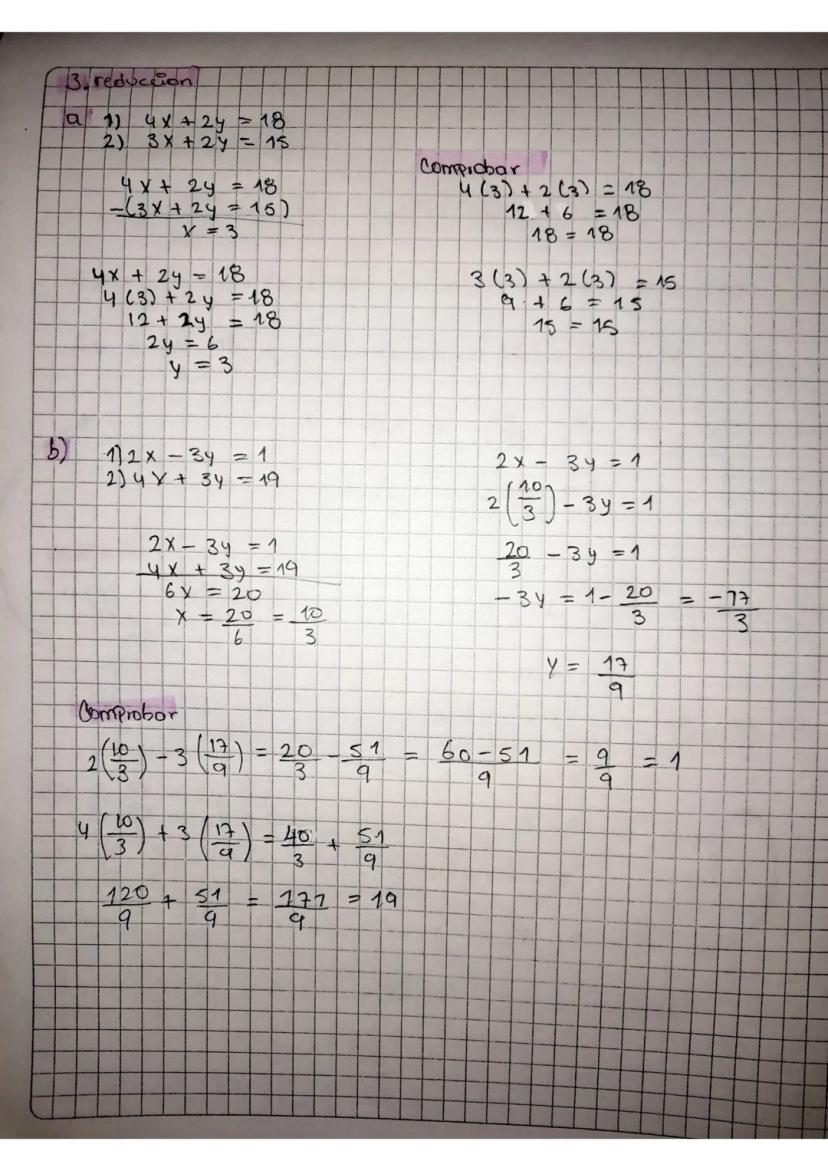 3. reduccion
a 1) 4x + 2y = 18
2) 3x + 2y = 15
4x + 2y = 18
-(3x + 2y = 15)
x = 3
4x + 2y = 18
4(3) + 2y = 18
12 + 2y = 18
2y = 6
y = 3
Comprobar
4(3) + 2(3) = 18
12 + 6 = 18
18 = 18
3(3) + 2(3) = 15
9 + 6 = 15
15 = 15
b) 1) 2x - 3y = 1
2) 4x + 3y = 19
2x - 3y = 1
4x + 3y = 19
6x = 20
x = 20/6 = 10/3
2x - 3y = 1
2(10/3) - 3y = 1
20/3 - 3y = 1
-3y = 1 - 20/3 = -17/3
y = 17/9
Comprobar
2(10/3) - 3(17/9) = 20/3 - 51/9 = 60-51/9 = 9/9 = 1
4(10/3) + 3(17/9) = 40/3 + 51/9
120/9 + 51/9 = 171/9 = 19